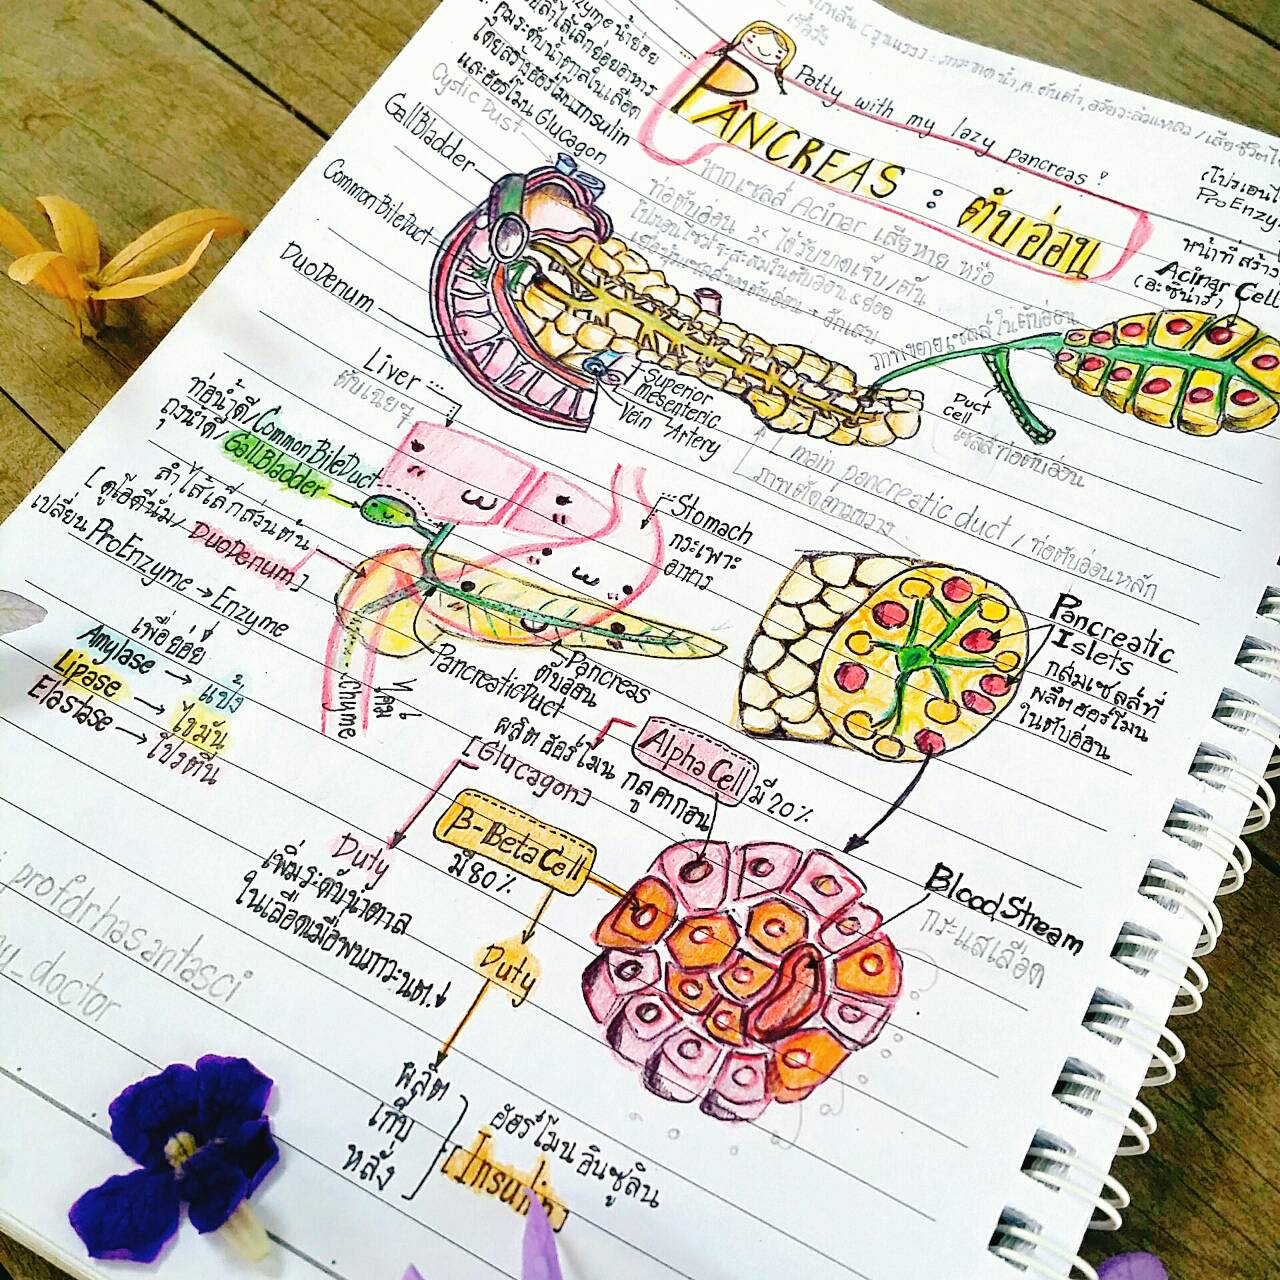 Enzyme น้ำย่อย
ลำไส้เล็กย่อยอาหาร
คุมระดับน้ำตาลในเลือด
โดยสร้างฮอร์โมน Insulin
และฮอร์โมน Glucagon
Patty with my lazy pancreas!
PANCREAS : ตับอ่อน
หากเซลล์ Acinar เสียหาย หรือ
ท่อตับอ่อน ได้รับบาดเจ็บ/ตัน
Cystic Dust
GallBladder
Common Bile Duct
DuoDenum
ProEnzy
หน้าที่ สร้าง
Acinar Cell
(อะซินาร์)
ภาพขยายเซลล์ในตับอ่อน
Duct Cell
เซลล์ท่อตับอ่อน
Superior
Mesenteric
Vein Artery
main pancreatic duct / ท่อตับอ่อนหลัก
ภาพตัดตามขวาง
Liver
ตับเฉยๆ
ท่อน้ำดี/Common Bile Duct
ถุงน้ำดี/GallBladder
ลำไส้เล็กส่วนต้น
[ดูโอดีนั่ม/DuoDenum]
เปลี่ยน ProEnzyme → Enzyme
เพื่อย่อย
Amylase → แป้ง
Lipase → ไขมัน
Elastase → โปรตีน
Stomach
กระเพาะ
อาหาร
Pancreas
ตับอ่อน
Pancreatic Duct
Chyme
Pancreatic
Islets
กลุ่มเซลล์ที่
ผลิตฮอร์โมน
ในตับอ่อน
Alpha Cell มี 20%
ผลิตฮอร์โมน กลูคากอน
[Glucagon]
Duty
เพิ่มระดับน้ำตาล
β-Beta Cell
มี 80%
Duty
ผลิต
เก็บ
หลั่ง
ฮอร์โมน อินซูลิน
[Insulin]
Blood Stream
กระแสเลือด
profarhasantasci
y_doctor